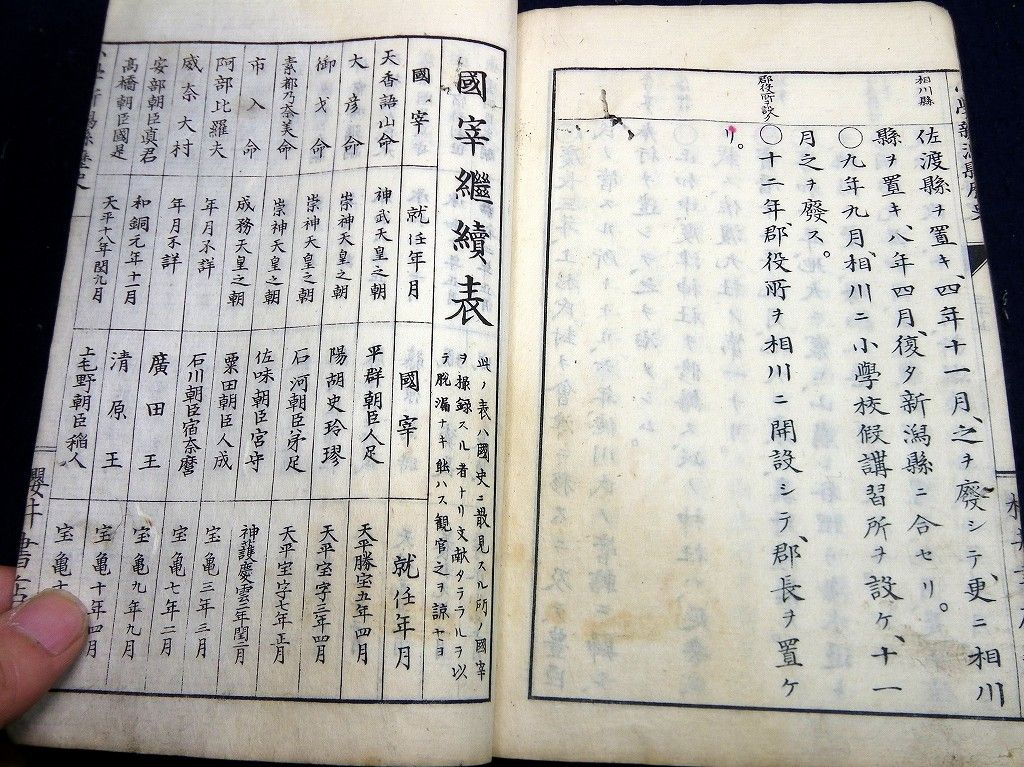 相川縣
佐渡縣ヲ置キ、四年十一月、之ヲ廢シテ、更ニ相川
縣ヲ置キ、八年四月、復タ新潟縣ニ合セリ。
〇九年九月、相川ニ小學校假講習所ヲ設ケ、十一
月之ヲ廢ス。
郡役所ヲ設ク
〇十二年、郡役所ヲ相川ニ開設シテ、郡長ヲ置ケ
リ。
國宰繼續表
此ノ表ハ國史ニ散見スル所ノ國宰
ヲ採録スル者トリ文献タラヲルヲ以
テ脱漏ナキ能ハス観官之ヲ諒セヨ
國宰 就任年月 國宰 就任年月
天香語山命 神武天皇之朝 平群朝臣人足 天平勝宝五年四月
大彦命 崇神天皇之朝 陽胡史玲璆 天平宝字三年四月
御戈命 崇神天皇之朝 石河朝臣弟足 天平宝字七年正月
素都乃奈美命 崇神天皇之朝 佐味朝臣宮守 神護慶雲二年閏二月
市入命 成務天皇之朝 粟田朝臣人成 宝亀三年三月
阿部比羅夫 年月不詳 石川朝臣宿奈麿 宝亀七年二月
威奈大村 年月不詳 廣田王 宝亀九年九月
安部朝臣真君 和銅元年十一月 清原王 宝亀十年四月
高橋朝臣國足 天平十八年閏九月 上毛野朝臣稲人 宝亀十
櫻井書